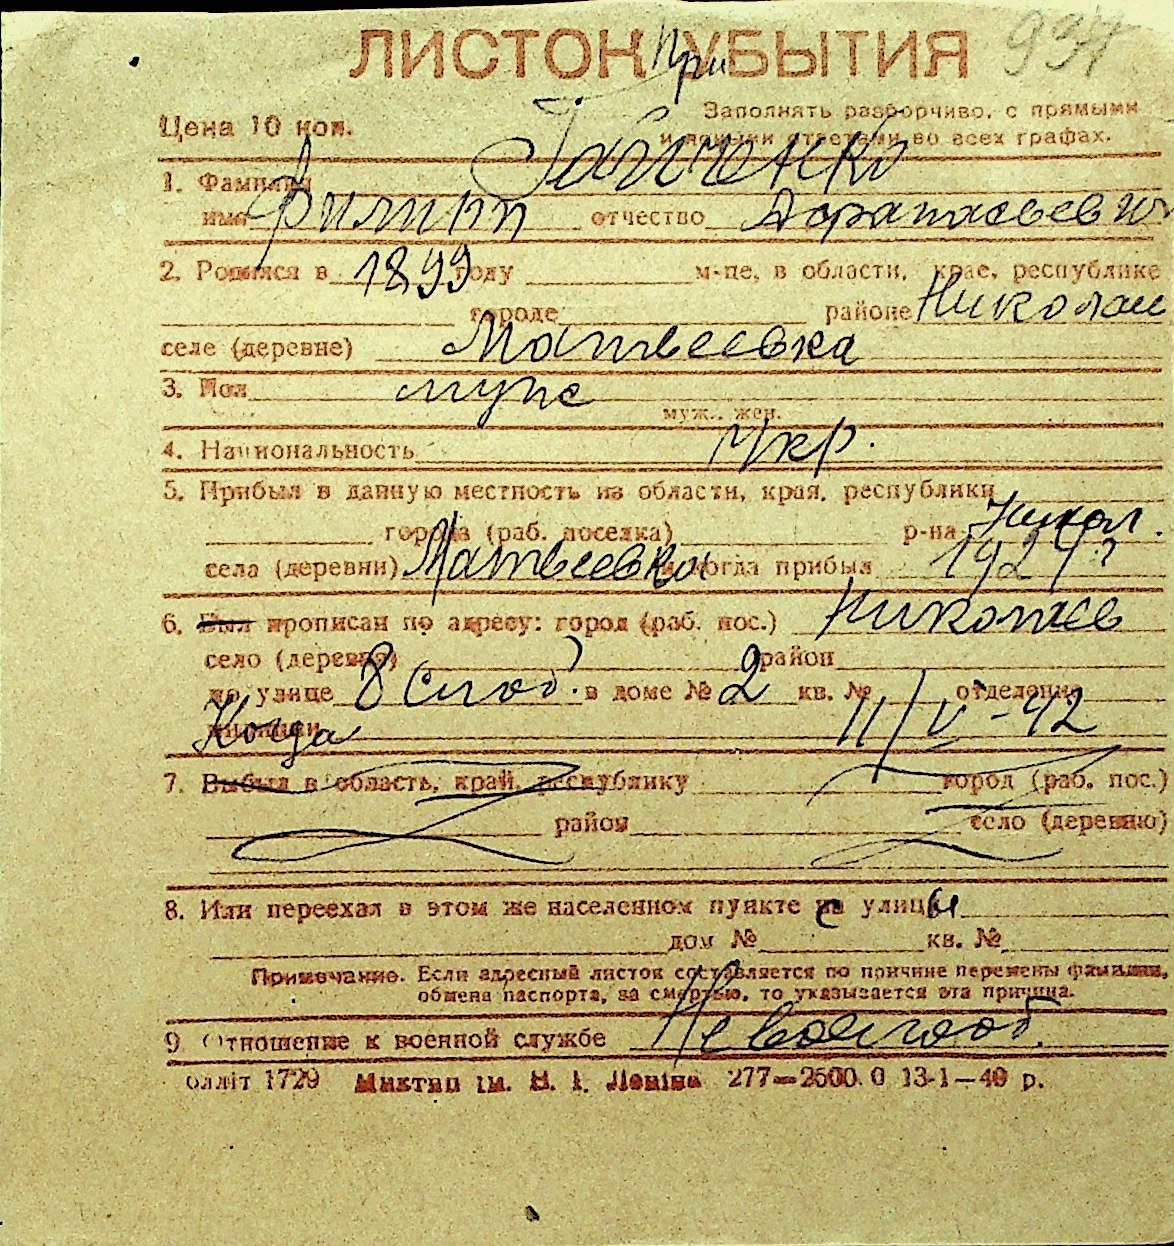 ЛИСТОК УБЫТИЯ
При
934
Цена 10 коп.
Заполнять разборчиво, с прямыми
и ясными ответами во всех графах.
1. Фамилия
имя Филипп отчество Афанасьевич
2. Родился в 1899 году м-це, в области, крае, республике
городе районе Николаев
селе (деревне) Матвеевка
3. Пол муж
муж., жен.
4. Национальность Укр.
5. Прибыл в данную местность из области, края, республики
города (раб. поселка) р-на Никол.
села (деревни) Матвеевки и когда прибыл
6. Был прописан по адресу: город (раб. пос.) Николаев
село (деревня) район
по улице 8 Слоб. в доме № 2 кв. № отделение
милиции Когда 11/V-42
7. Выбыл в область, край, республику город (раб. пос.)
район село (деревню)
8. Или переехал в этом же населенном пункте с улицы
дом № кв. №
Примечание. Если адресный листок составляется по причине перемены фамилии,
обмена паспорта, за смертью, то указывается эта причина.
9. Отношение к военной службе Невоеннооб.
олліт 1729 Миктип ім. В. І. Леніна 277—2500.0 13-1—40 р.